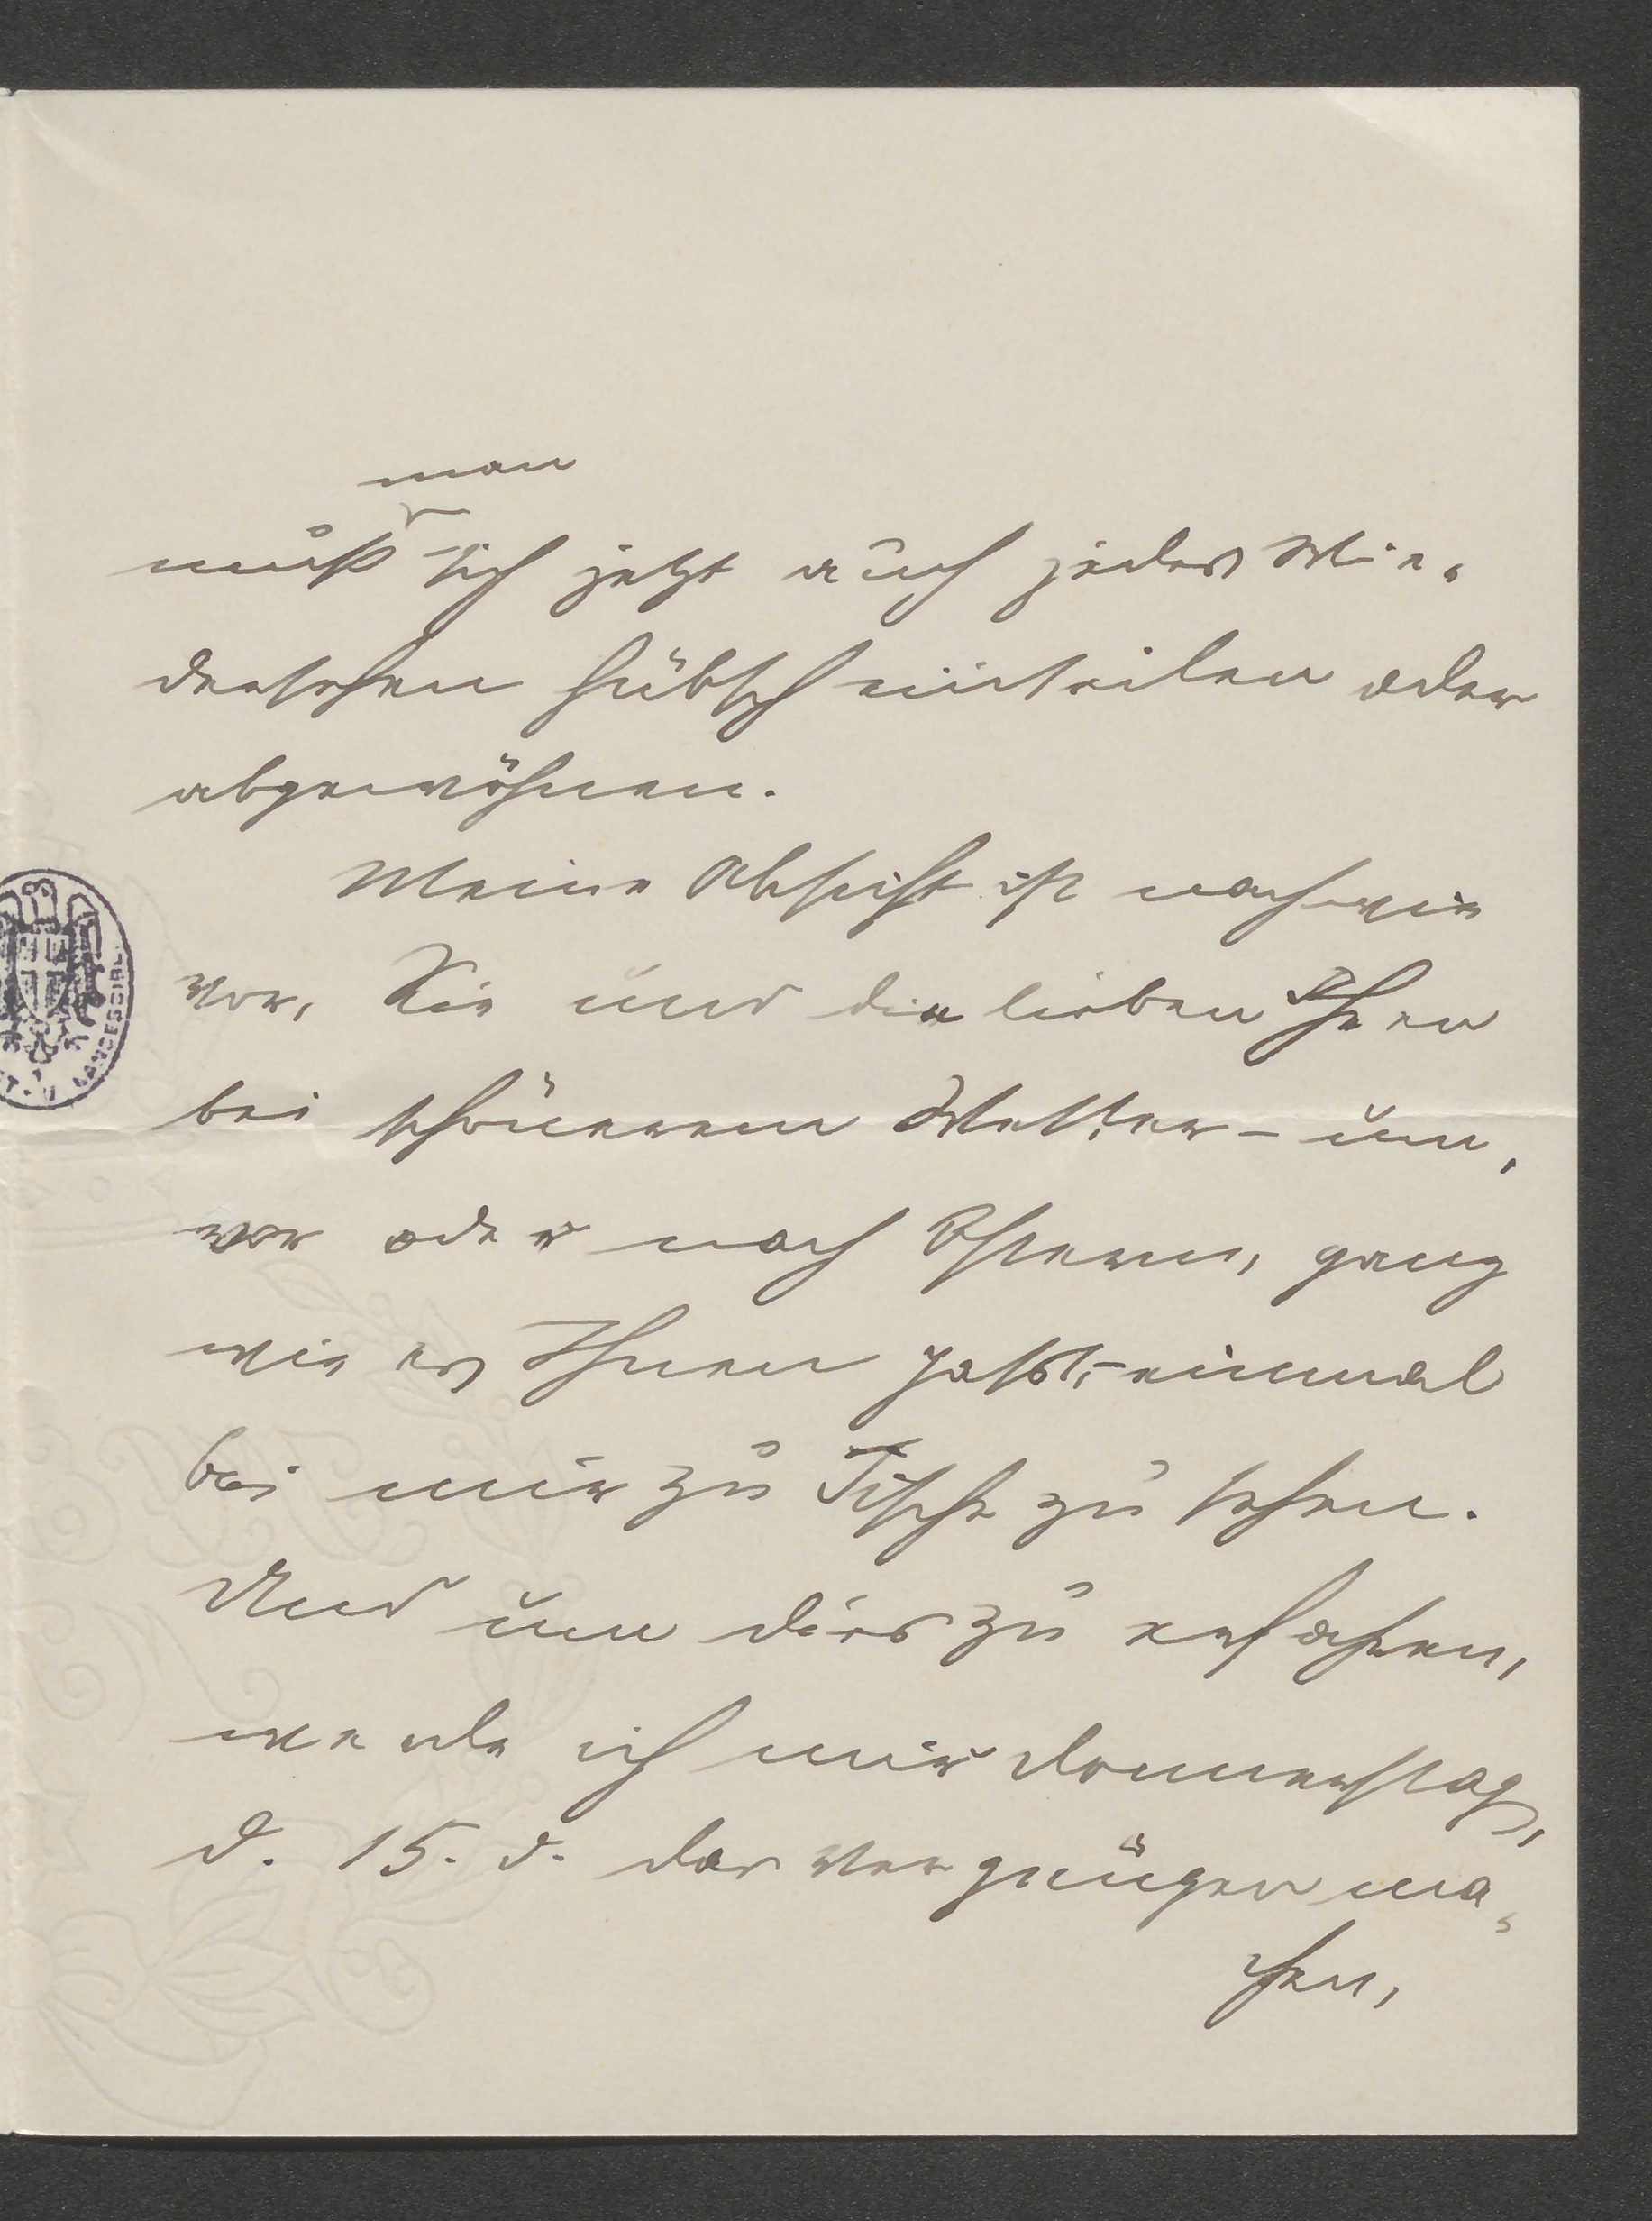 man
muß sich jetzt auch jedes Wie-
dersehen hübsch einteilen oder
abgewöhnen.
Meine Absicht ist nach wie
vor, Sie und die lieben Ihren
bei schönerem Wetter – um,
vor oder nach Ostern, ganz
wie es Ihnen paßt, – einmal
bei mir zu Tische zu sehen.
Und um dies zu erfahren,
werde ich mir Donnerstag,
d. 15. d. das Vergnügen ma-
chen,